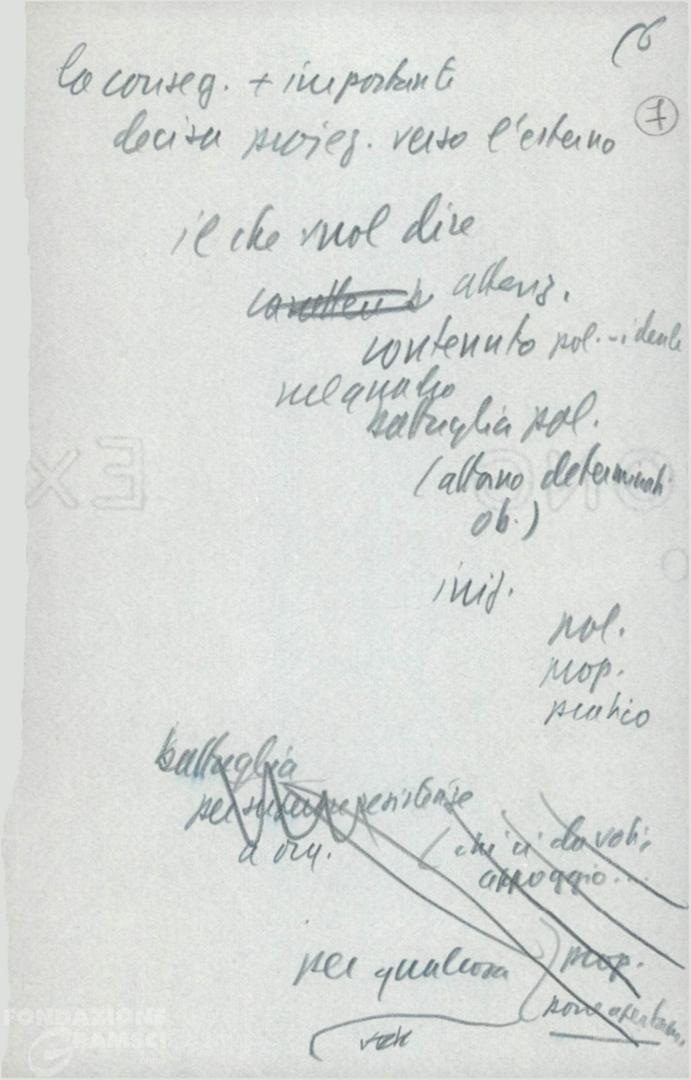 6
7
la conseg. + importante
decisa proiez. verso l'esterno
il che vuol dire
attenz.
contenuto pol.-ideale
battaglia pol.
(attorno determinati
ob.)
iniz.
pol.
prop.
pratico
battaglia
per resistenze
a
chi ci da voti,
appoggio...
per qualcosa
prop.
FONDAZIONE
GRAMSCI